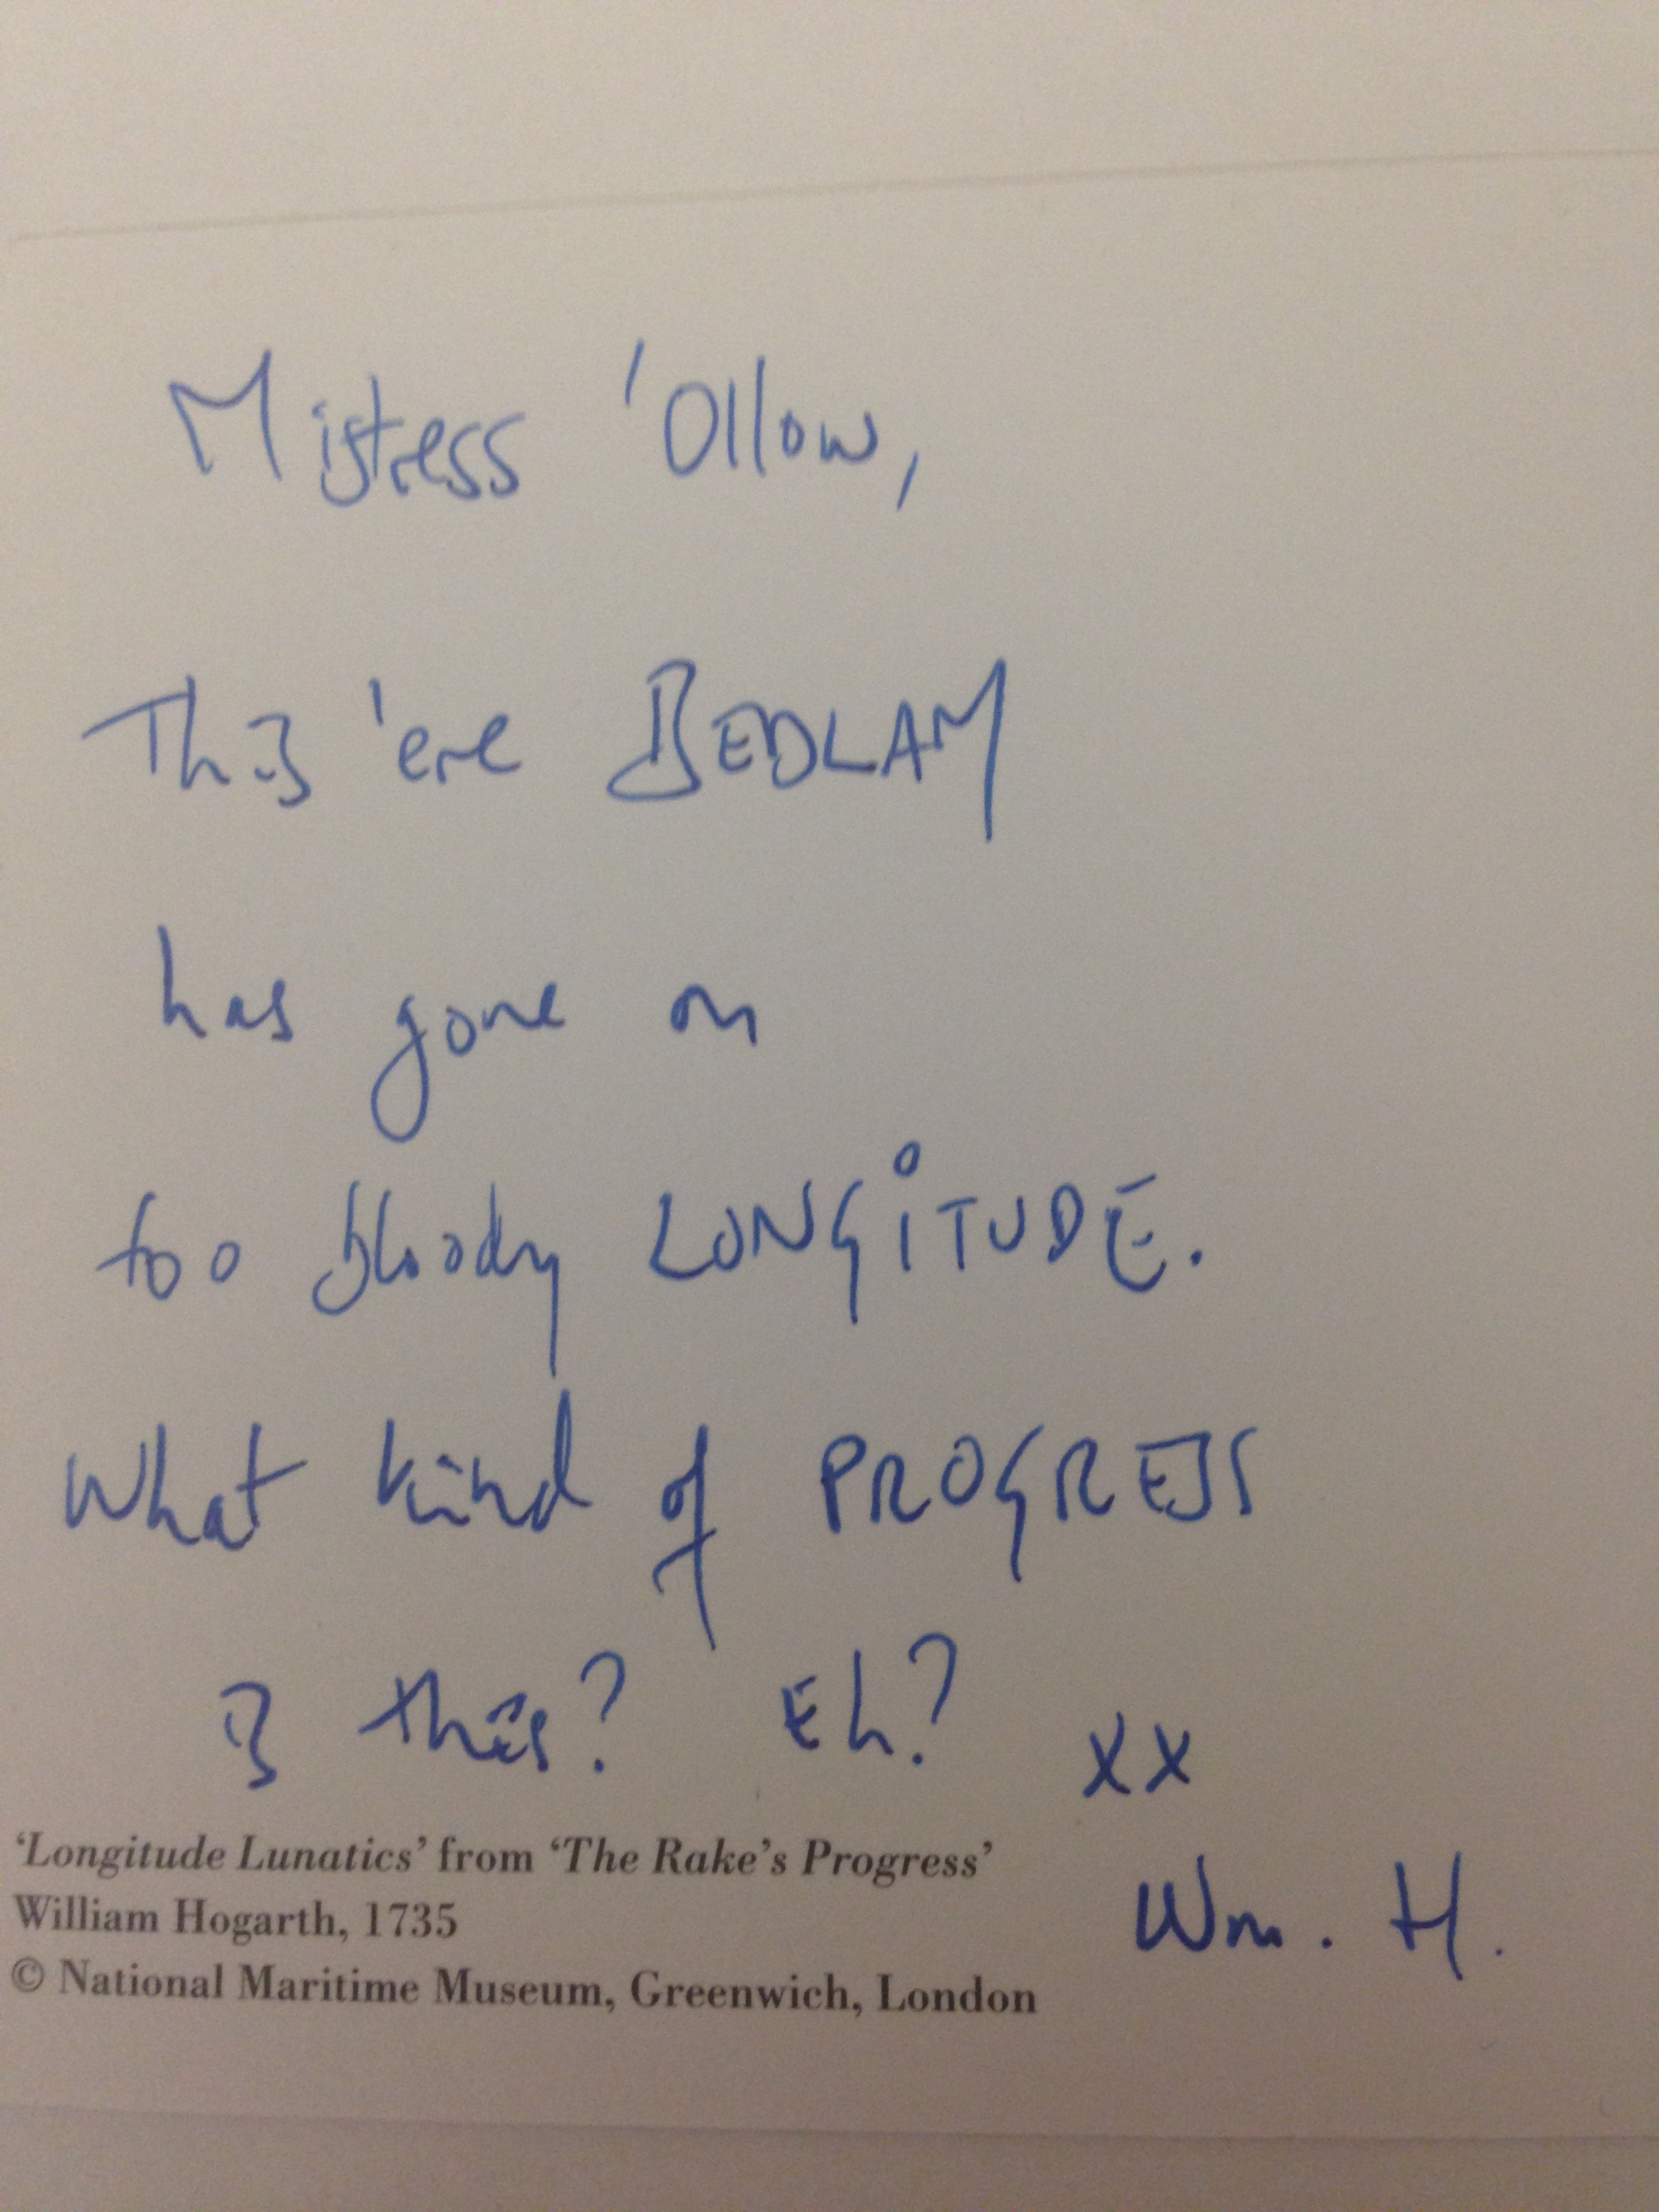 Mistress 'Ollow,
This 'ere BEDLAM
has gone on
too bloody LONGiTUDE.
What kind of PROGRESS
is this? Eh? xx
Wm. H.
‘Longitude Lunatics’ from ‘The Rake’s Progress’
William Hogarth, 1735
© National Maritime Museum, Greenwich, London